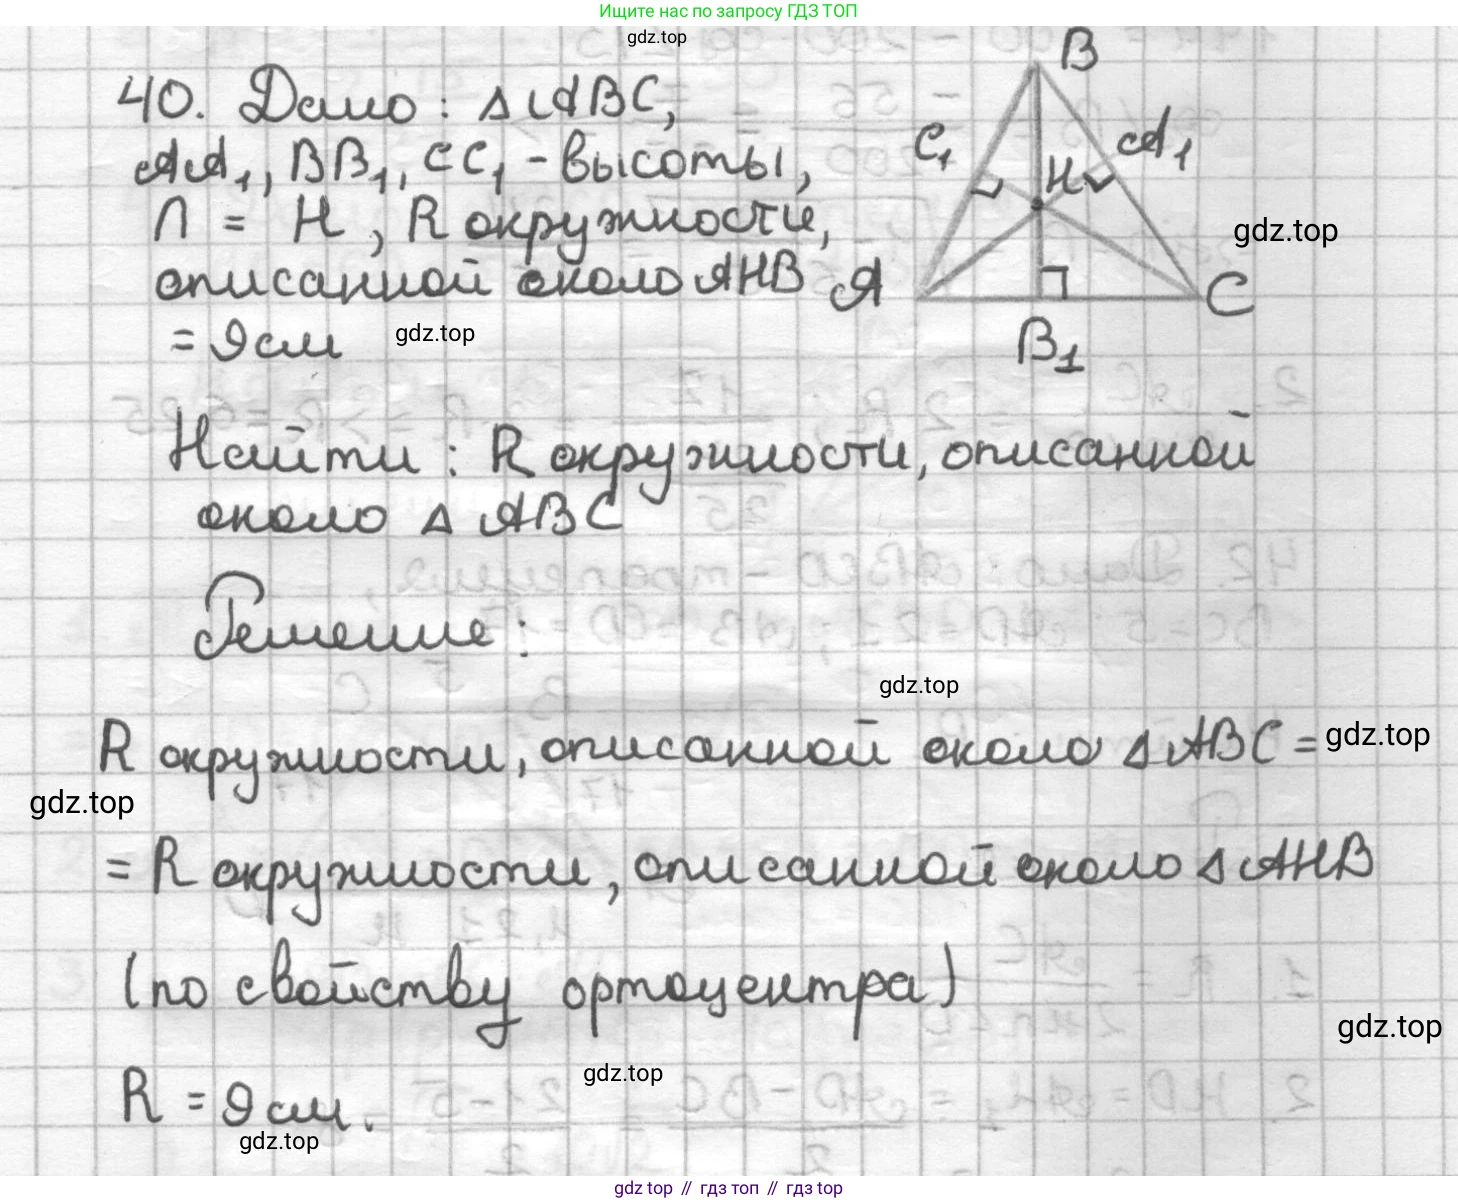 Ищите нас по запросу ГДЗ ТОП
gdz.top
40. Дано: △ ABC,
AA₁, BB₁, CC₁ - высоты,
∩ = H, R окружности,
описанной около AHB
= 9 см
gdz.top
B
C₁
A₁
H
gdz.top
A
C
B₁
Найти: R окружности, описанной
около △ ABC
Решение:
gdz.top
R окружности, описанной около △ ABC =
gdz.top
gdz.top
= R окружности, описанной около △ AHB
(по свойству ортоцентра)
gdz.top
gdz.top
R = 9 см.
gdz.top
gdz top // гдз топ // гдз top